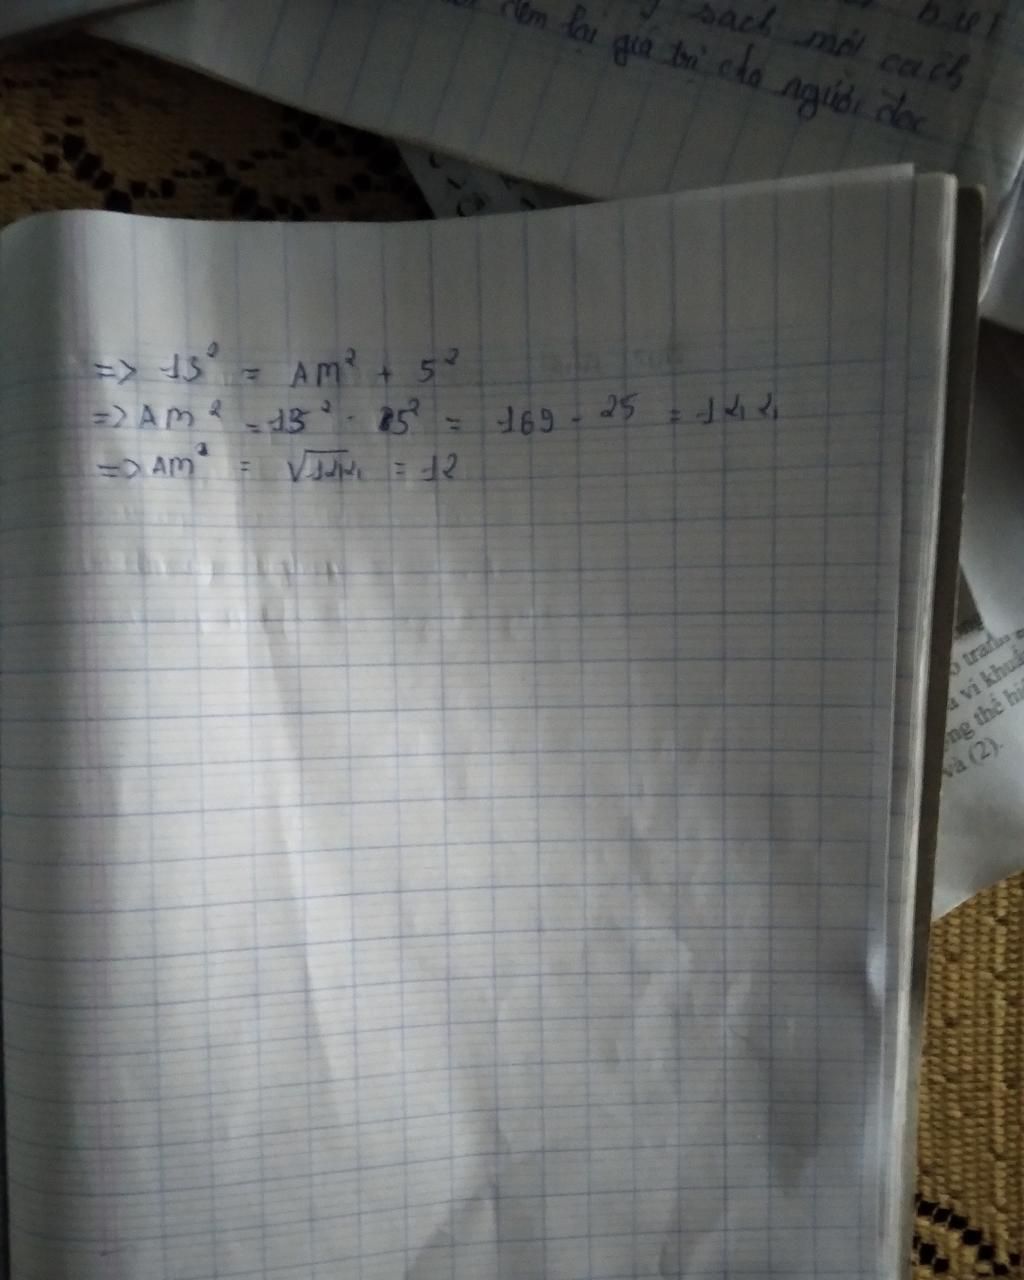 bưi
sách một cách
đem lại giá trị cho người đọc
=> 13² = AM² + 5²
=> AM² = 13² - 5² = 169 - 25 = 144
=> AM² = √144 = 12
vi khuẩ
ng thể hiệ
và (2).